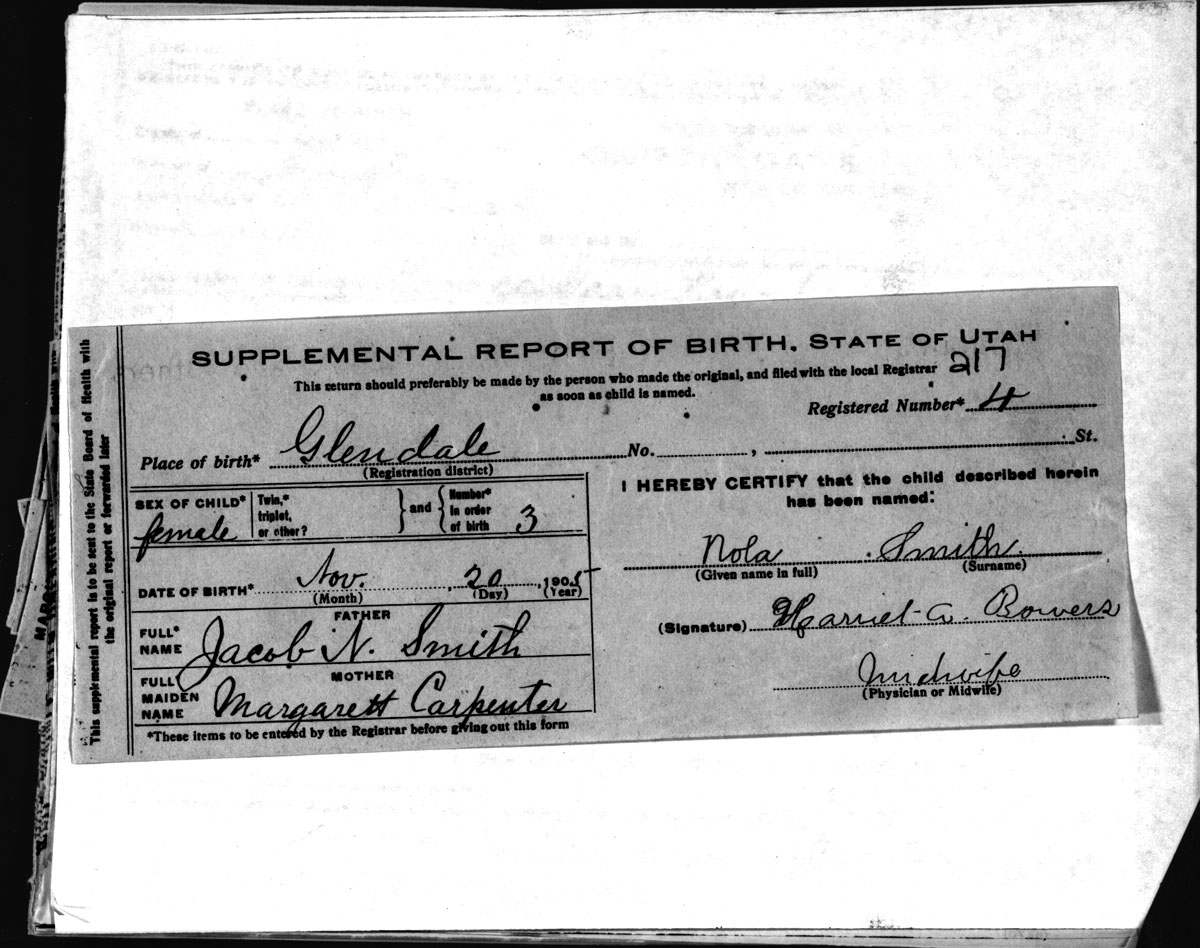 SUPPLEMENTAL REPORT OF BIRTH. STATE OF UTAH
This return should preferably be made by the person who made the original, and filed with the local Registrar
as soon as child is named.
217
Registered Number* 4
Place of birth* Glendale No. , St.
(Registration district)
SEX OF CHILD* female
Twin,* triplet, or other?
and
Number* in order of birth 3
DATE OF BIRTH* Nov. 20 1905
(Month) (Day) (Year)
FATHER
FULL* NAME Jacob N. Smith
MOTHER
FULL MAIDEN NAME Margarett Carpenter
*These items to be entered by the Registrar before giving out this form
I HEREBY CERTIFY that the child described herein
has been named:
Nola Smith.
(Given name in full) (Surname)
(Signature) Harriet A. Bowers
Midwife
(Physician or Midwife)
This supplemental report is to be sent to the State Board of Health with
the original report or forwarded later